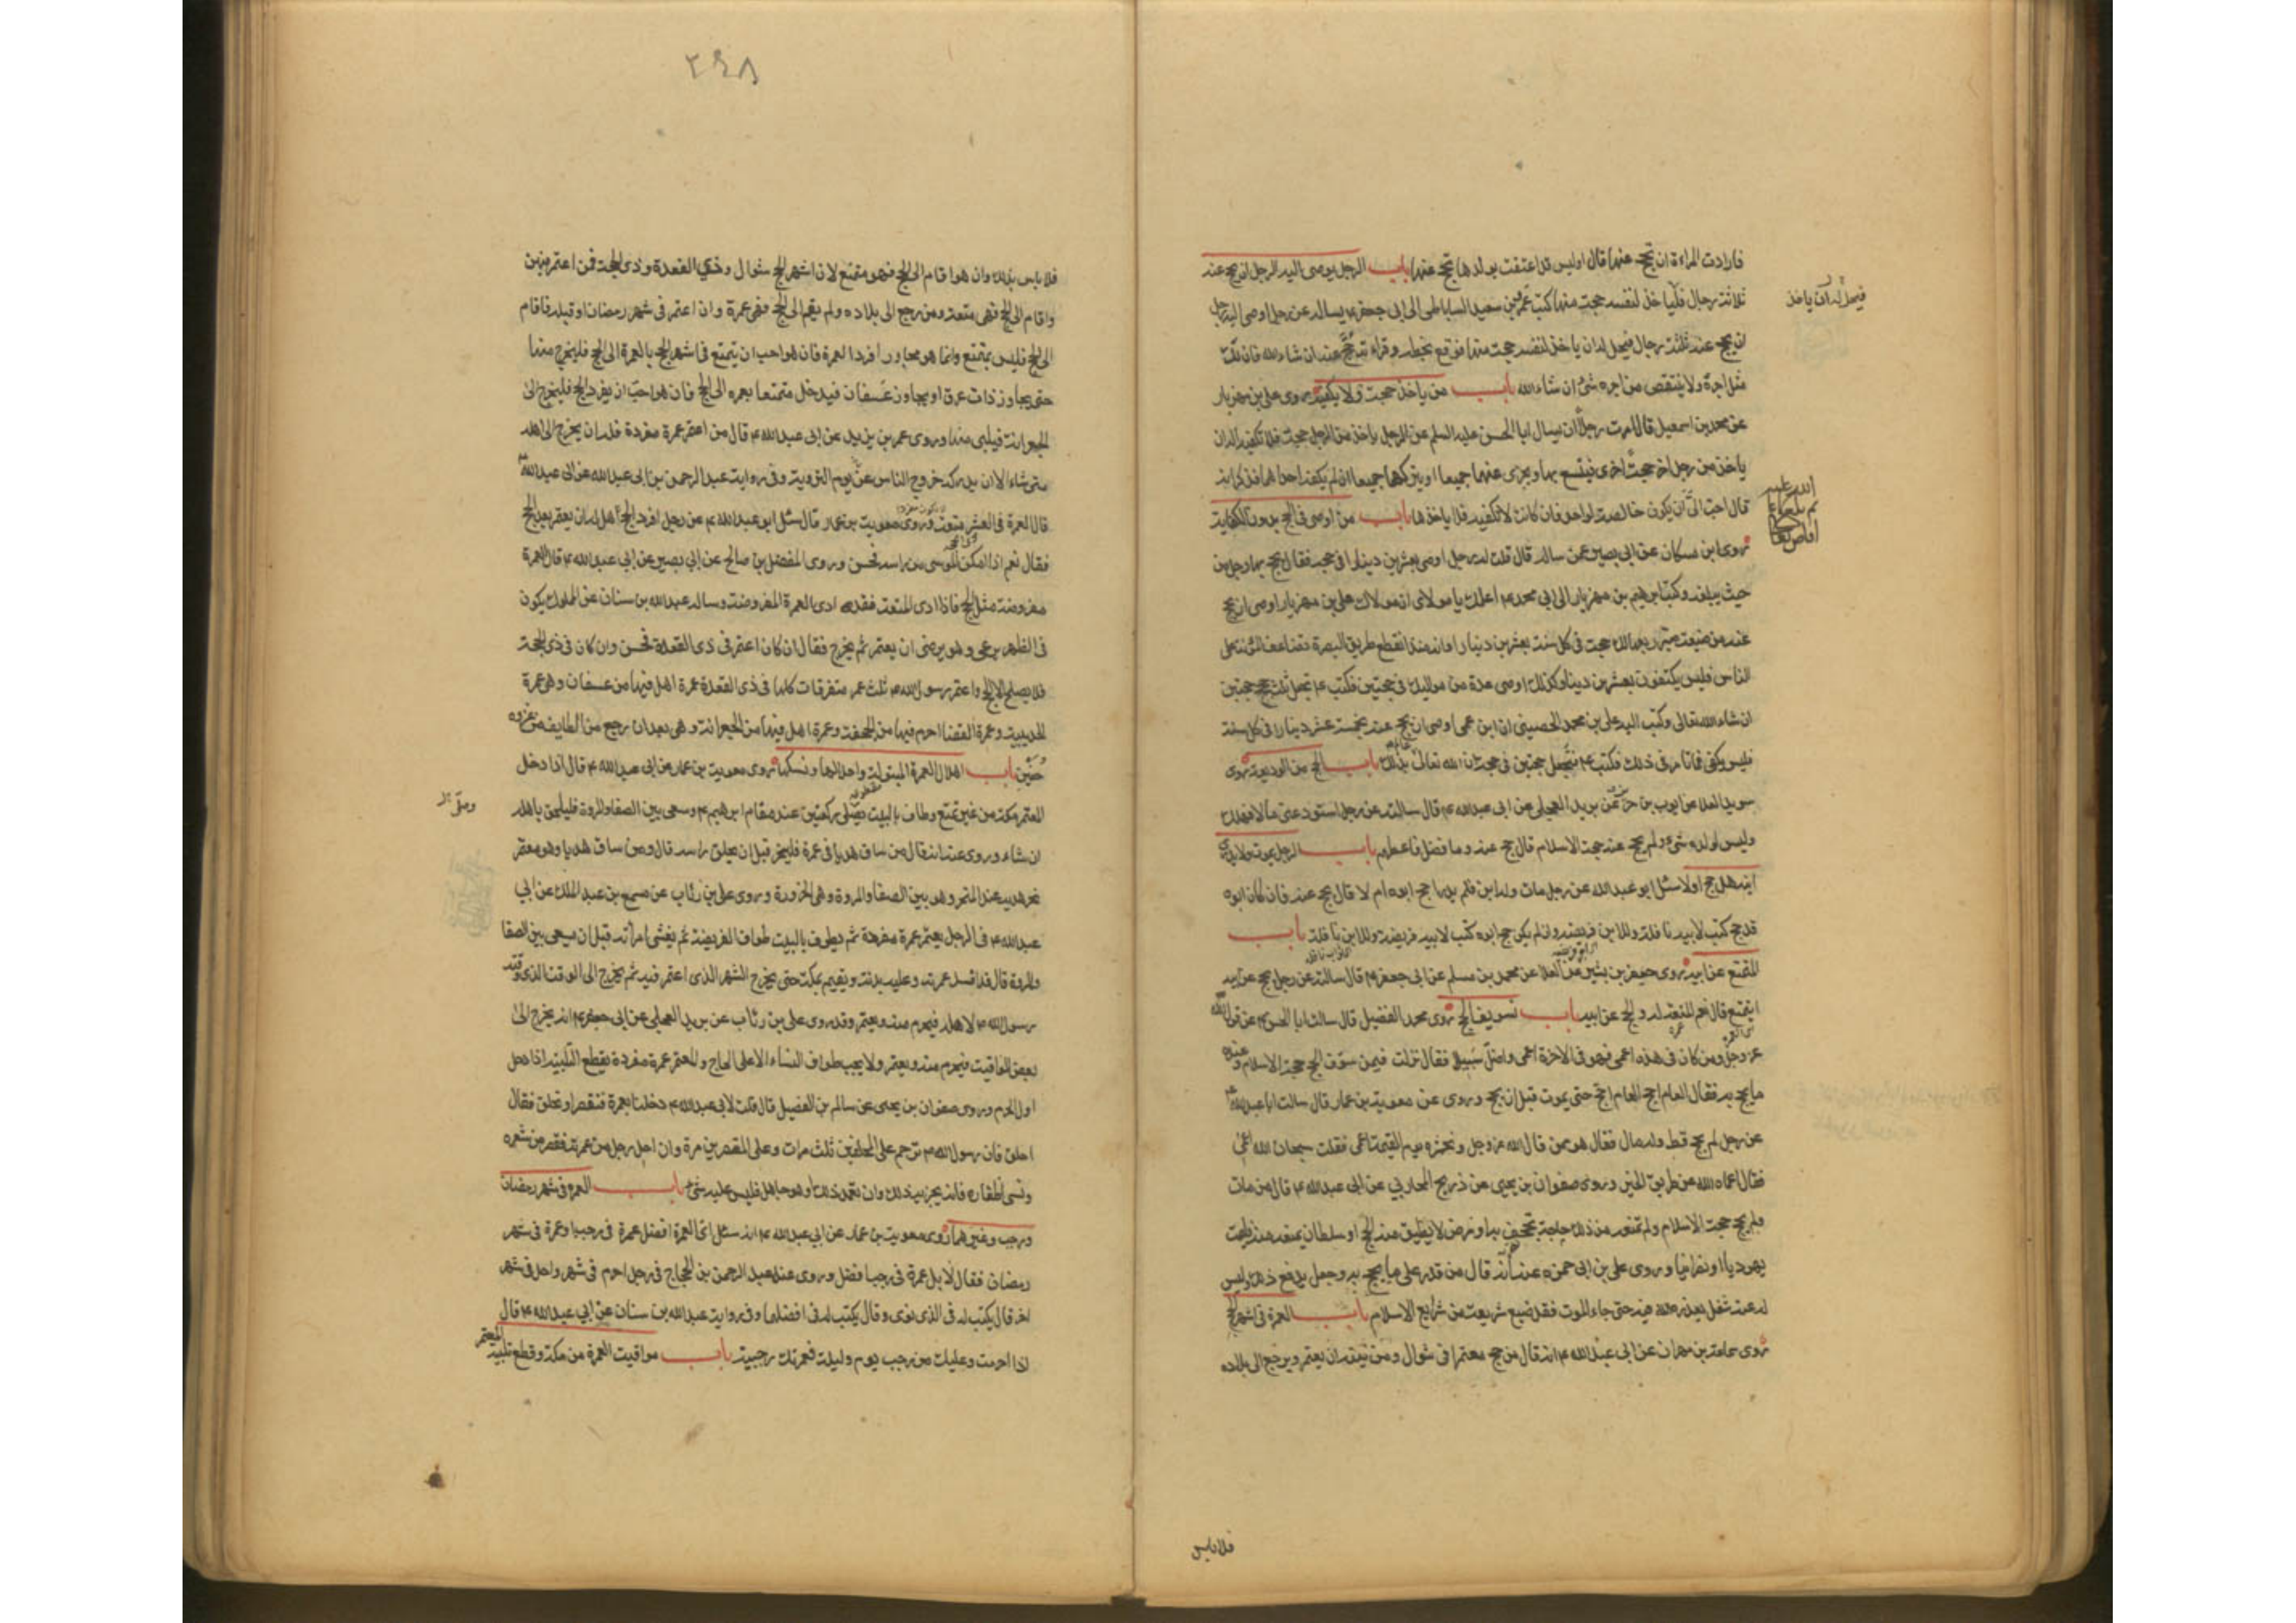 فارادت المراءة ان تحج عنها قال اوليس قد اعتقت بولدها تحج عنها باب الرجل يوصى اليه الرجل ان يحج عنه
ثلاثة رجال فيأخذ لنفسه حجة منها كتب عمرو بن سعيد الساباطى الى ابى جعفر ع يساله عن رجل اوصى اليه رجل
فيحل له ان ياخذ
ان يحج عنه ثلثة رجال فيحل له ان ياخذ لنفسه حجة منها فوقع بخطه وقراءته حج عنه ان شاء الله فان لك
مثل اجره ولا ينتقص من اجره شئ ان شاء الله باب من ياخذ حجة ولا يكفيه روى على بن مهزيار
عن محمد بن اسمعيل قال امرت رجلا ان يسال ابا الحسن عليه السلم عن الرجل ياخذ من الرجل حجة فلا تكفيه اله ان
ياخذ من رجل اخر حجة اخرى فيتسع بها ويجزى عنهما جميعا او يتركهما جميعا ان لم يكفه احداهما فذكر انه
قال احب الى ان يكون خالصة لواحد فان كانت لا تكفيه فلا ياخذها باب من اوصى فى الحج بدون الكفاية
روى ابن مسكان عن ابى بصير عمن ساله قال قلت له رجل اوصى بعشرين دينارا فى حجة فقال يحج بها رجل من
حيث يبلغه وكتب ابرهيم بن مهزيار الى ابى محمد ع اعلمك يا مولاى ان مولاك على بن مهزيار اوصى ان يحج
عنه من ضيعة صير ربعها لك حجة فى كل سنة بعشرين دينارا وانه منذ انقطع طريق البصرة تضاعف المؤنة على
الناس فليس يكتفون بعشرين دينارا وكذلك اوصى عدة من مواليك فى حجتين فكتب ع تجعل ثلث حجج حجتين
ان شاء الله تعالى وكتب اليه على بن محمد الحصينى ان ابن عمى اوصى ان يحج عنه بخمسة عشر دينارا فى كل سنة
فليس يكفى فما تامر فى ذلك فكتب ع تجعل حجتين فى حجة ان الله تعالى عالم بذلك باب الحج من الوديعة روى
سويد القلا عن ايوب بن حر عن بريد العجلى عن ابى عبد الله ع قال سالته عن رجل استودعنى مالا فهلك
وليس لولده شئ ولم يحج عنه حجة الاسلام قال حج عنه وما فضل فاعطهم باب الرجل يموت ولا يدرى
ابنه هل حج اولا سئل ابو عبد الله عن رجل مات وله ابن فلم يدر حج ابوه ام لا قال يحج عنه فان كان ابوه
قد حج كتب لابيه نافلة وللابن فريضة وان لم يكن حج ابوه كتب لابيه فريضة وللابن نافلة باب
المتمتع عن ابيه روى جعفر بن بشير عن العلا عن محمد بن مسلم عن ابى جعفر ع قال سالته عن رجل يحج عن ابيه
ايتمتع قال نعم المتعة له والحج عن ابيه باب تسويف الحج روى محمد الفضيل قال سالت ابا الحسن ع عن قول الله
عز وجل ومن كان فى هذه اعمى فهو فى الاخرة اعمى واضل سبيلا فقال نزلت فيمن سوف الحج حجة الاسلام وعنده
ما يحج به فقال العام احج العام احج حتى يموت قبل ان يحج وروى عن معوية بن عمار قال سالت ابا عبد الله ع
عن رجل لم يحج قط وله مال فقال هو ممن قال الله عز وجل ونحشره يوم القيمة اعمى فقلت سبحان الله اعمى
فقال اعماه الله عن طريق الخير وروى صفوان بن يحيى عن ذريح المحاربى عن ابى عبد الله ع قال من مات
ولم يحج حجة الاسلام ولم تمنعه من ذلك حاجة تجحف به او مرض لا يطيق منه الحج او سلطان يمنعه منه فليمت
يهوديا او نصرانيا وروى على بن ابى حمزه عنه انه قال من قدر على ما يحج به وجعل يدفع ذلك وليس
له عنه شغل يعذره الله فيه حتى جاء الموت فقد ضيع شريعة من شرايع الاسلام باب العمرة فى اشهر الحج
روى سماعة بن مهران عن ابى عبد الله ع انه قال من حج معتمرا فى شوال ومن نيته ان يعتمر ويرجع الى بلاده
فلا باس
٢٩٨
فلا باس بذلك وان هو اقام الى الحج فهو متمتع لان اشهر الحج شوال وذى القعدة وذى الحجة فمن اعتمر فيهن
واقام الى الحج فهى متعة ومن رجع الى بلاده ولم يقم الى الحج فهى عمرة وان اعتمر فى شهر رمضان او قبله فاقام
الى الحج فليس بمتمتع وانما هو مجاور افرد العمرة فان هو احب ان يتمتع فى اشهر الحج بالعمرة الى الحج فليخرج منها
حتى يجاوز ذات عرق او يجاوز عسفان فيدخل متمتعا بعمرة الى الحج فان هو احب ان يفرد الحج فليخرج الى
الجعرانة فيلبى منها وروى عمر بن يزيد عن ابى عبد الله ع قال من اعتمر عمرة مفردة فله ان يخرج الى اهله
متى شاء الا ان يدركه خروج الناس يوم التروية وفى رواية عبد الرحمن بن ابى عبد الله عن ابى عبد الله ع
قال العمرة فى العشر متعة وروى معوية بن عمار قال سئل ابو عبد الله ع عن رجل افرد الحج اهل له ان يعتمر بعد الحج
فقال نعم اذا امكن الموسى من راسه فحسن وروى المفضل بن صالح عن ابى بصير عن ابى عبد الله ع قال العمرة
مفروضة مثل الحج فاذا ادى المتعة فقد ادى العمرة المفروضة وساله عبد الله بن سنان عن المملوك يكون
فى الظهر يرعى وهو يرضى ان يعتمر ثم يخرج فقال ان كان اعتمر فى ذى القعدة فحسن وان كان فى ذى الحجة
فلا يصلح الا الحج واعتمر رسول الله ص ثلث عمر متفرقات كلها فى ذى القعدة عمرة اهل فيها من عسفان وهى عمرة
الحديبية وعمرة القضا احرم فيها من الجحفة وعمرة اهل فيها من الجعرانة وهى بعد ان رجع من الطايف من غزوه
حنين باب اهلال العمرة المبتولة واحلالها ونسكها روى معوية بن عمار عن ابى عبد الله ع قال اذا دخل
المعتمر مكة من غير تمتع وطاف بالبيت وصلى ركعتين عند مقام ابرهيم ع وسعى بين الصفا والمروة فليلحق باهله
ان شاء وروى عنه انه قال من ساق هديا فى عمرة فلينحر قبل ان يحلق راسه قال ومن ساق هديا وهو معتمر
نحر هديه عند المنحر وهو بين الصفا والمروة وهى الحزورة وروى على بن رئاب عن مسمع بن عبد الملك عن ابى
عبد الله ع فى الرجل يعتمر عمرة مفردة ثم يطوف بالبيت طواف الفريضة ثم يغشى امرأته قبل ان يسعى بين الصفا
والمروة قال قد افسد عمرته وعليه بدنة ويقيم بمكة حتى يخرج الشهر الذى اعتمر فيه ثم يخرج الى الوقت الذى وقته
رسول الله ص لاهله فيحرم منه ويعتمر وقد روى على بن رئاب عن بريد العجلى عن ابى جعفر ع انه يخرج الى
بعض المواقيت فيحرم منه ويعتمر ولا يجب طواف النساء الا على الحاج والمعتمر عمرة مفردة يقطع التلبية اذا دخل
اول الحرم وروى صفوان بن يحيى عن سالم بن الفضيل قال قلت لابى عبد الله ع دخلنا بعمرة فنقصر او نحلق فقال
احلق فان رسول الله ص ترحم على المحلقين ثلث مرات وعلى المقصرين مرة وان احل رجل من عمرته فقصر من شعره
ونسى اظفاره فانه يجزيه ذلك وان تعمد ذلك وهو جاهل فليس عليه شئ باب العمرة فى شهر رمضان
ورجب وغيرهما روى معوية بن عمار عن ابى عبد الله ع انه سئل اى العمرة افضل عمرة فى رجب او عمرة فى شهر
رمضان فقال لا بل عمرة فى رجب افضل وروى عنه عبد الرحمن بن الحجاج فى رجل احرم فى شهر واحل فى شهر
اخر قال يكتب له فى الذى نوى وقال يكتب له فى افضلهما وفى رواية عبد الله بن سنان عن ابى عبد الله ع قال
اذا احرمت وعليك من رجب يوم وليلة فعمرتك رجبية باب مواقيت العمرة من مكة وقطع تلبية المعتمر